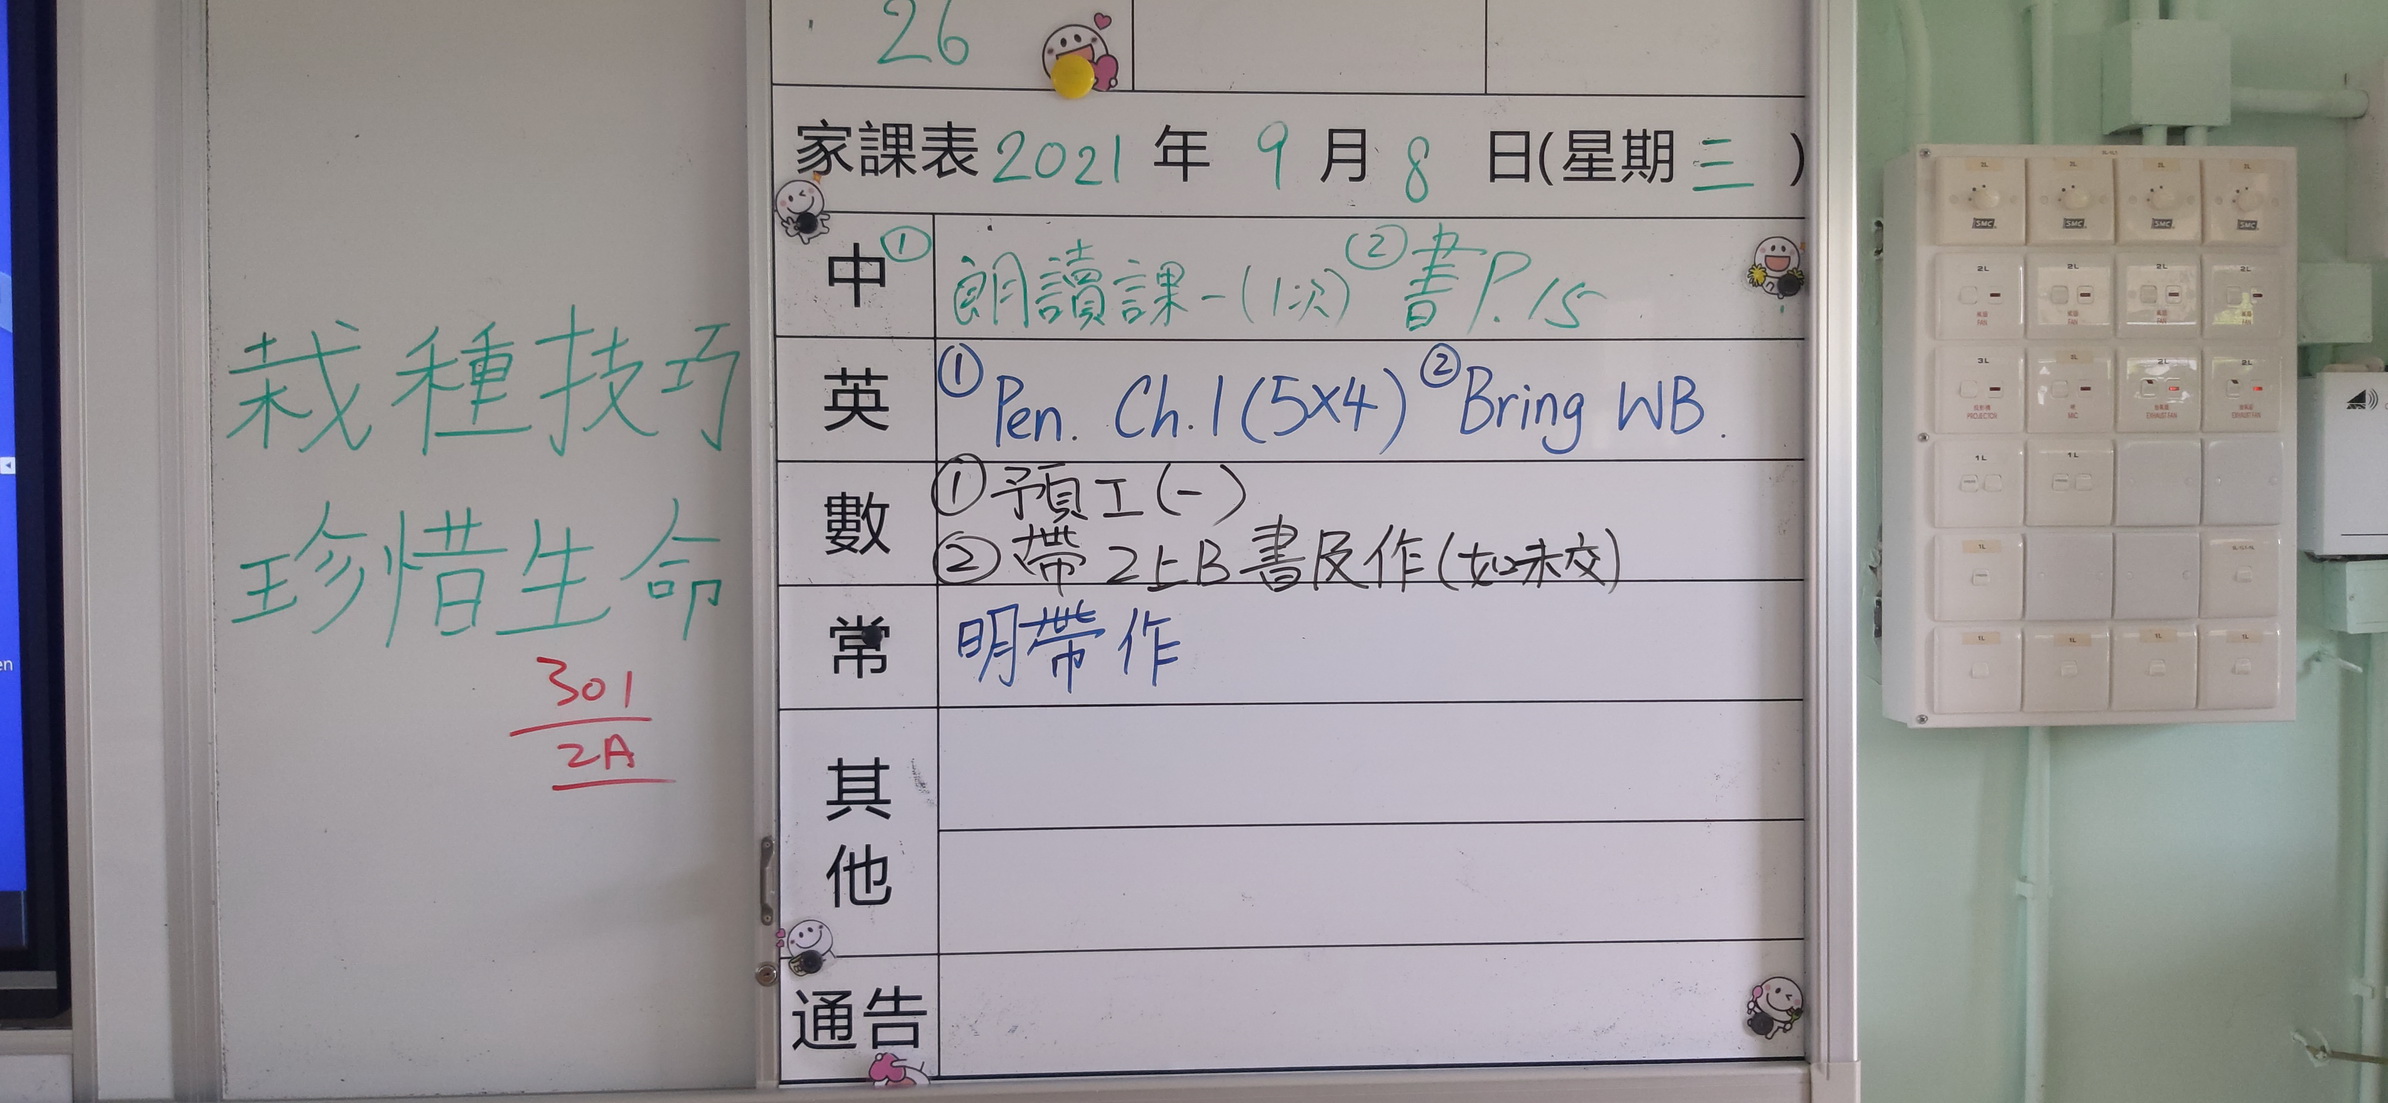 栽種技巧
珍惜生命
301
2A
26
家課表 2021 年 9 月 8 日(星期三)
中 ① 朗讀課一(1次) ② 書P.15
英 ① Pen. Ch.1 (5×4) ② Bring WB.
數 ① 預工(一)
② 帶2上B書及作(如未交)
常 明帶作
其他
通告
2L 2L 2L 2L
SMC SMC SMC SMC
2L 2L 2L 2L
風扇 風扇 風扇 風扇
FAN FAN FAN FAN
3L 2L 2L 2L
投影機 咪 抽氣扇 抽氣扇
PROJECTOR MIC EXHAUST FAN EXHAUST FAN
1L 1L
1L
1L 1L 1L 1L
en